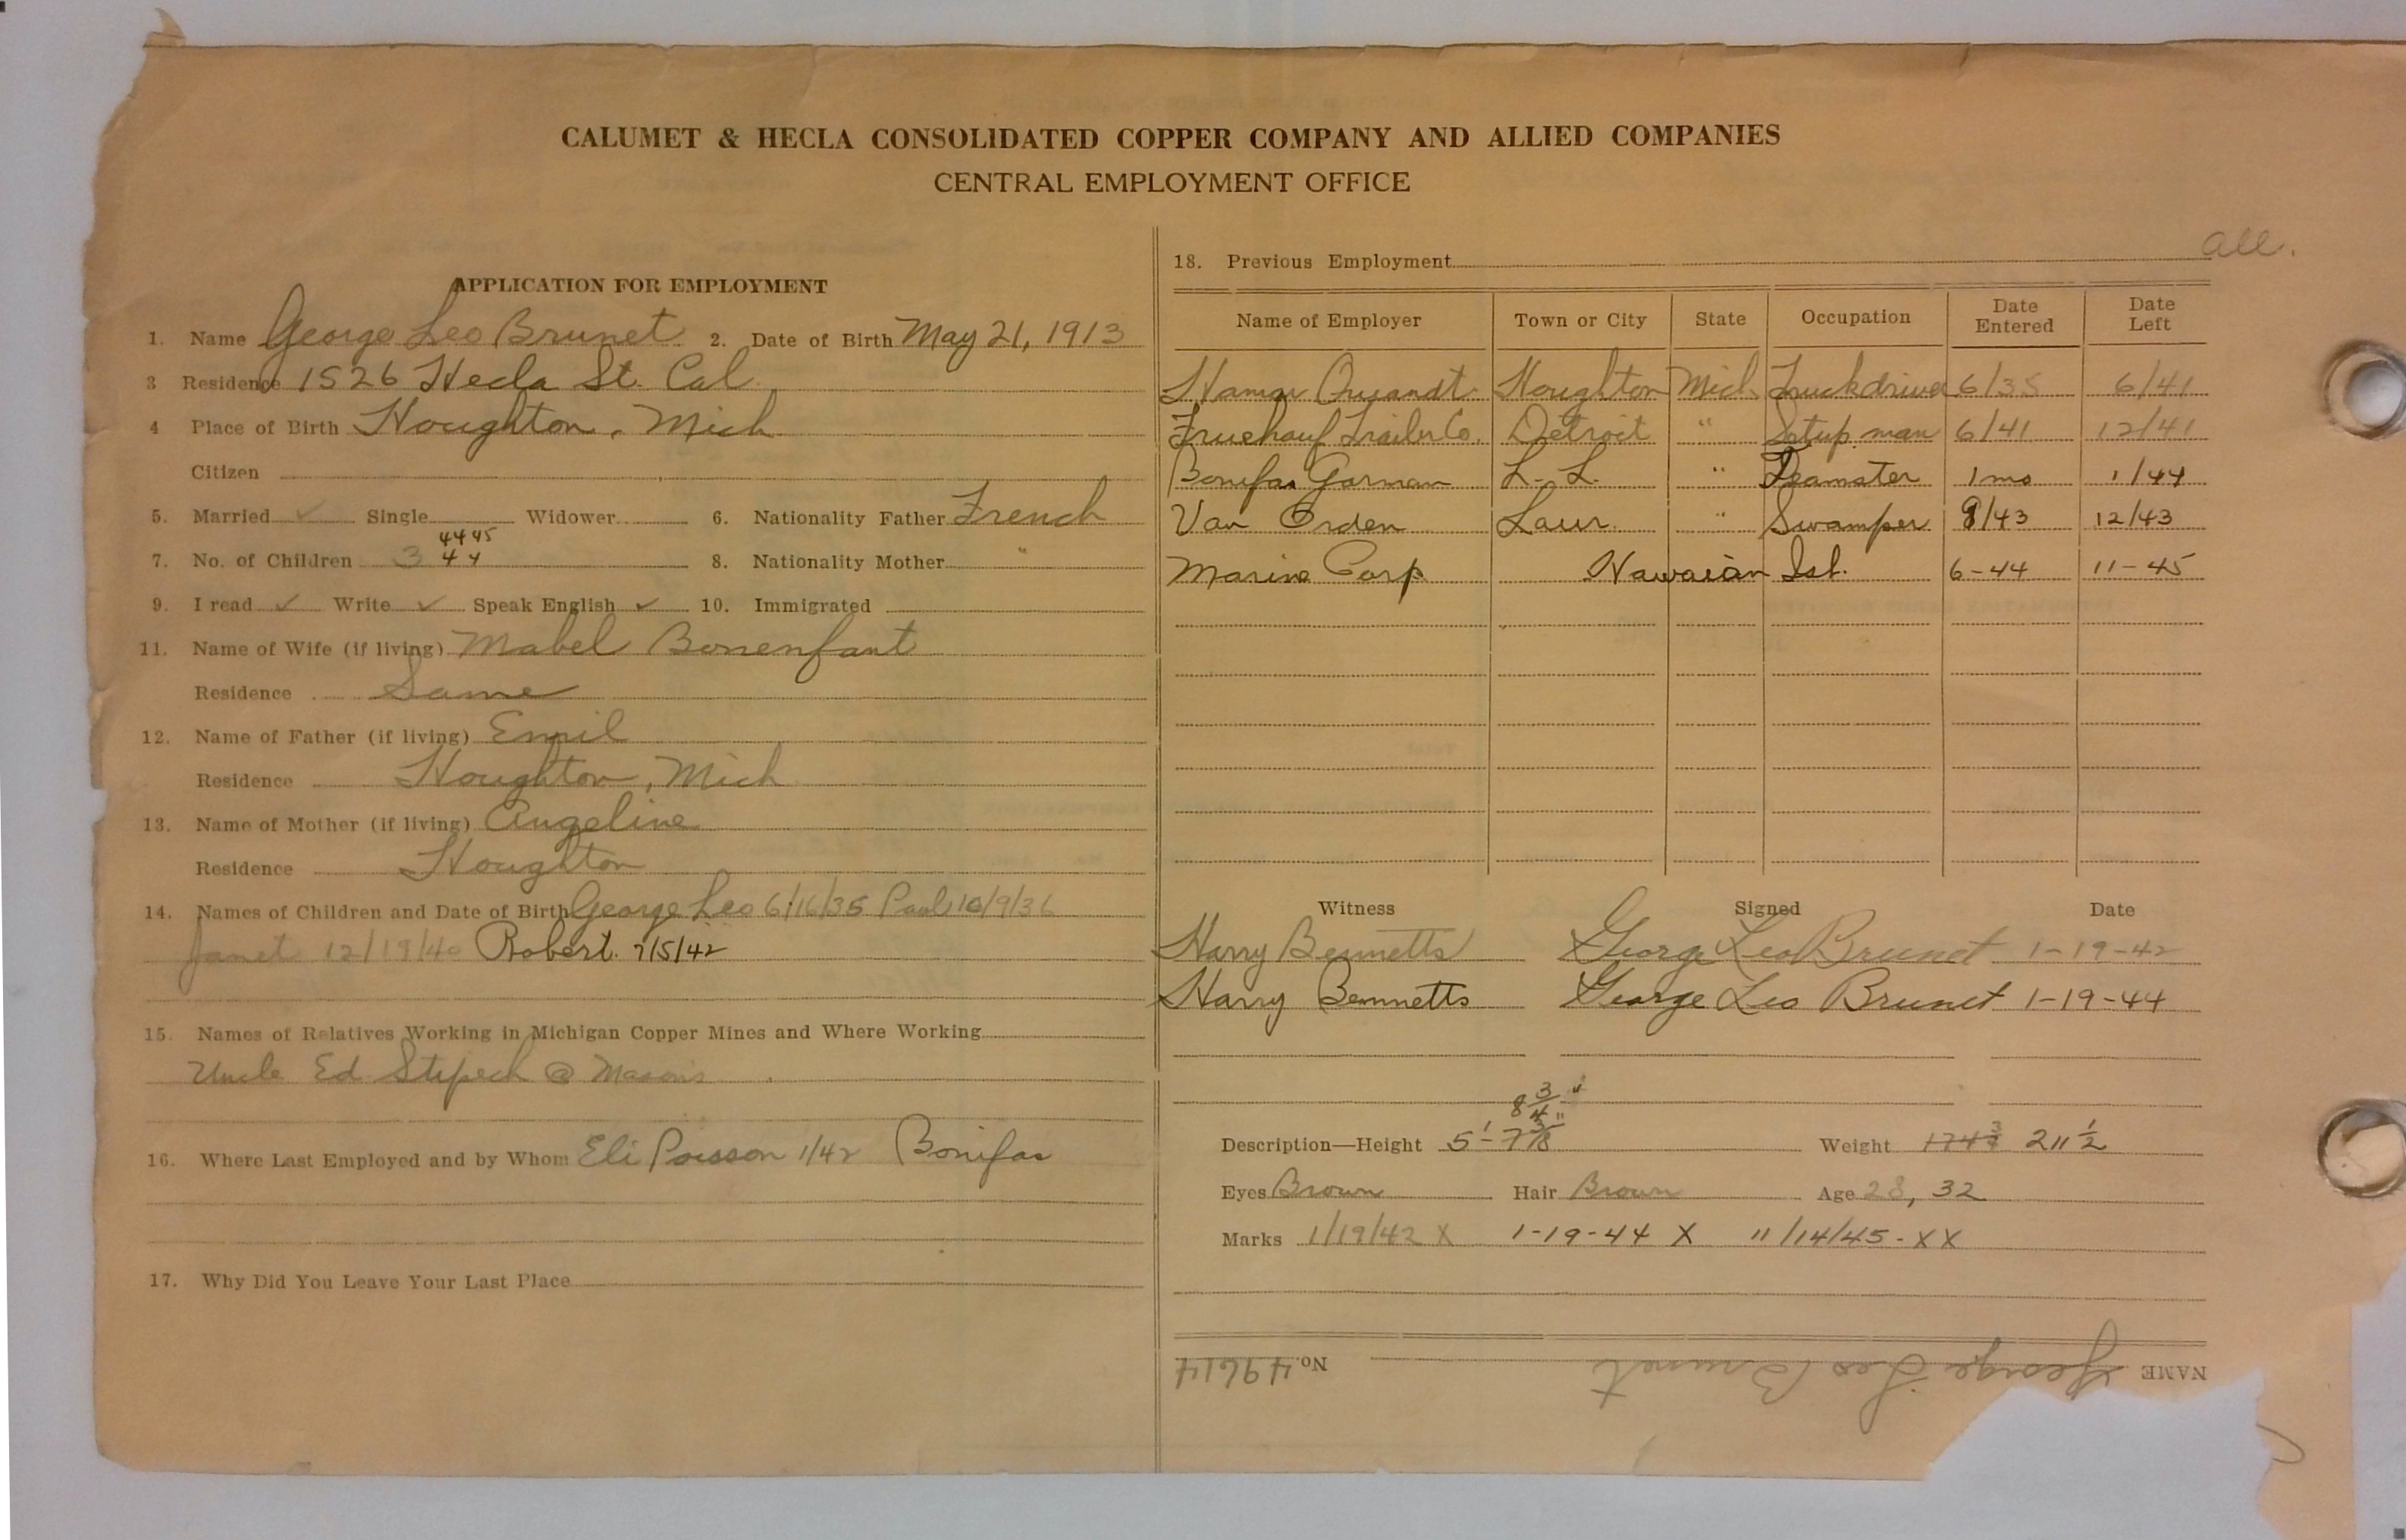 CALUMET & HECLA CONSOLIDATED COPPER COMPANY AND ALLIED COMPANIES
CENTRAL EMPLOYMENT OFFICE
APPLICATION FOR EMPLOYMENT
1. Name George Leo Brunet 2. Date of Birth May 21, 1913
3 Residence 1526 Hecla St. Cal
4 Place of Birth Houghton, Mich
Citizen
5. Married ✓ Single Widower 6. Nationality Father French
44 45
7. No. of Children 3 4 4 8. Nationality Mother "
9. I read ✓ Write ✓ Speak English ✓ 10. Immigrated
11. Name of Wife (if living) Mabel Bonenfant
Residence Same
12. Name of Father (if living) Emil
Residence Houghton, Mich
13. Name of Mother (if living) Angeline
Residence Houghton
14. Names of Children and Date of Birth George Leo 6/16/35 Paul 10/9/36
Janet 12/19/40 Robert. 7/5/42
15. Names of Relatives Working in Michigan Copper Mines and Where Working
Uncle Ed Stipech @ Masons
16. Where Last Employed and by Whom Eli Poisson 1/42 Bonifas
17. Why Did You Leave Your Last Place
all.
18. Previous Employment
Name of Employer Town or City State Occupation Date Entered Date Left
Quandt Houghton Mich Truckdriver 6/35 6/41
Fruehauf Trailer Co. Detroit " Setup man 6/41 12/41
Bonifas Gorman L. L. " Teamster 1 mo 1/44
Van Orden Laur. " Swamper 9/43 12/43
Marine Corp Hawaian Isl. 6-44 11-45
Witness Signed Date
Harry Bennetts George Leo Brunet 1-19-42
Harry Bennetts George Leo Brunet 1-19-44
8 3/4"
Description—Height 5'-7 Weight 174 3/4 211 1/2
Eyes Brown Hair Brown Age 28, 32
Marks 1/19/42 X 1-19-44 X 11/14/45-XX
NAME George Leo Brunet No. 49614